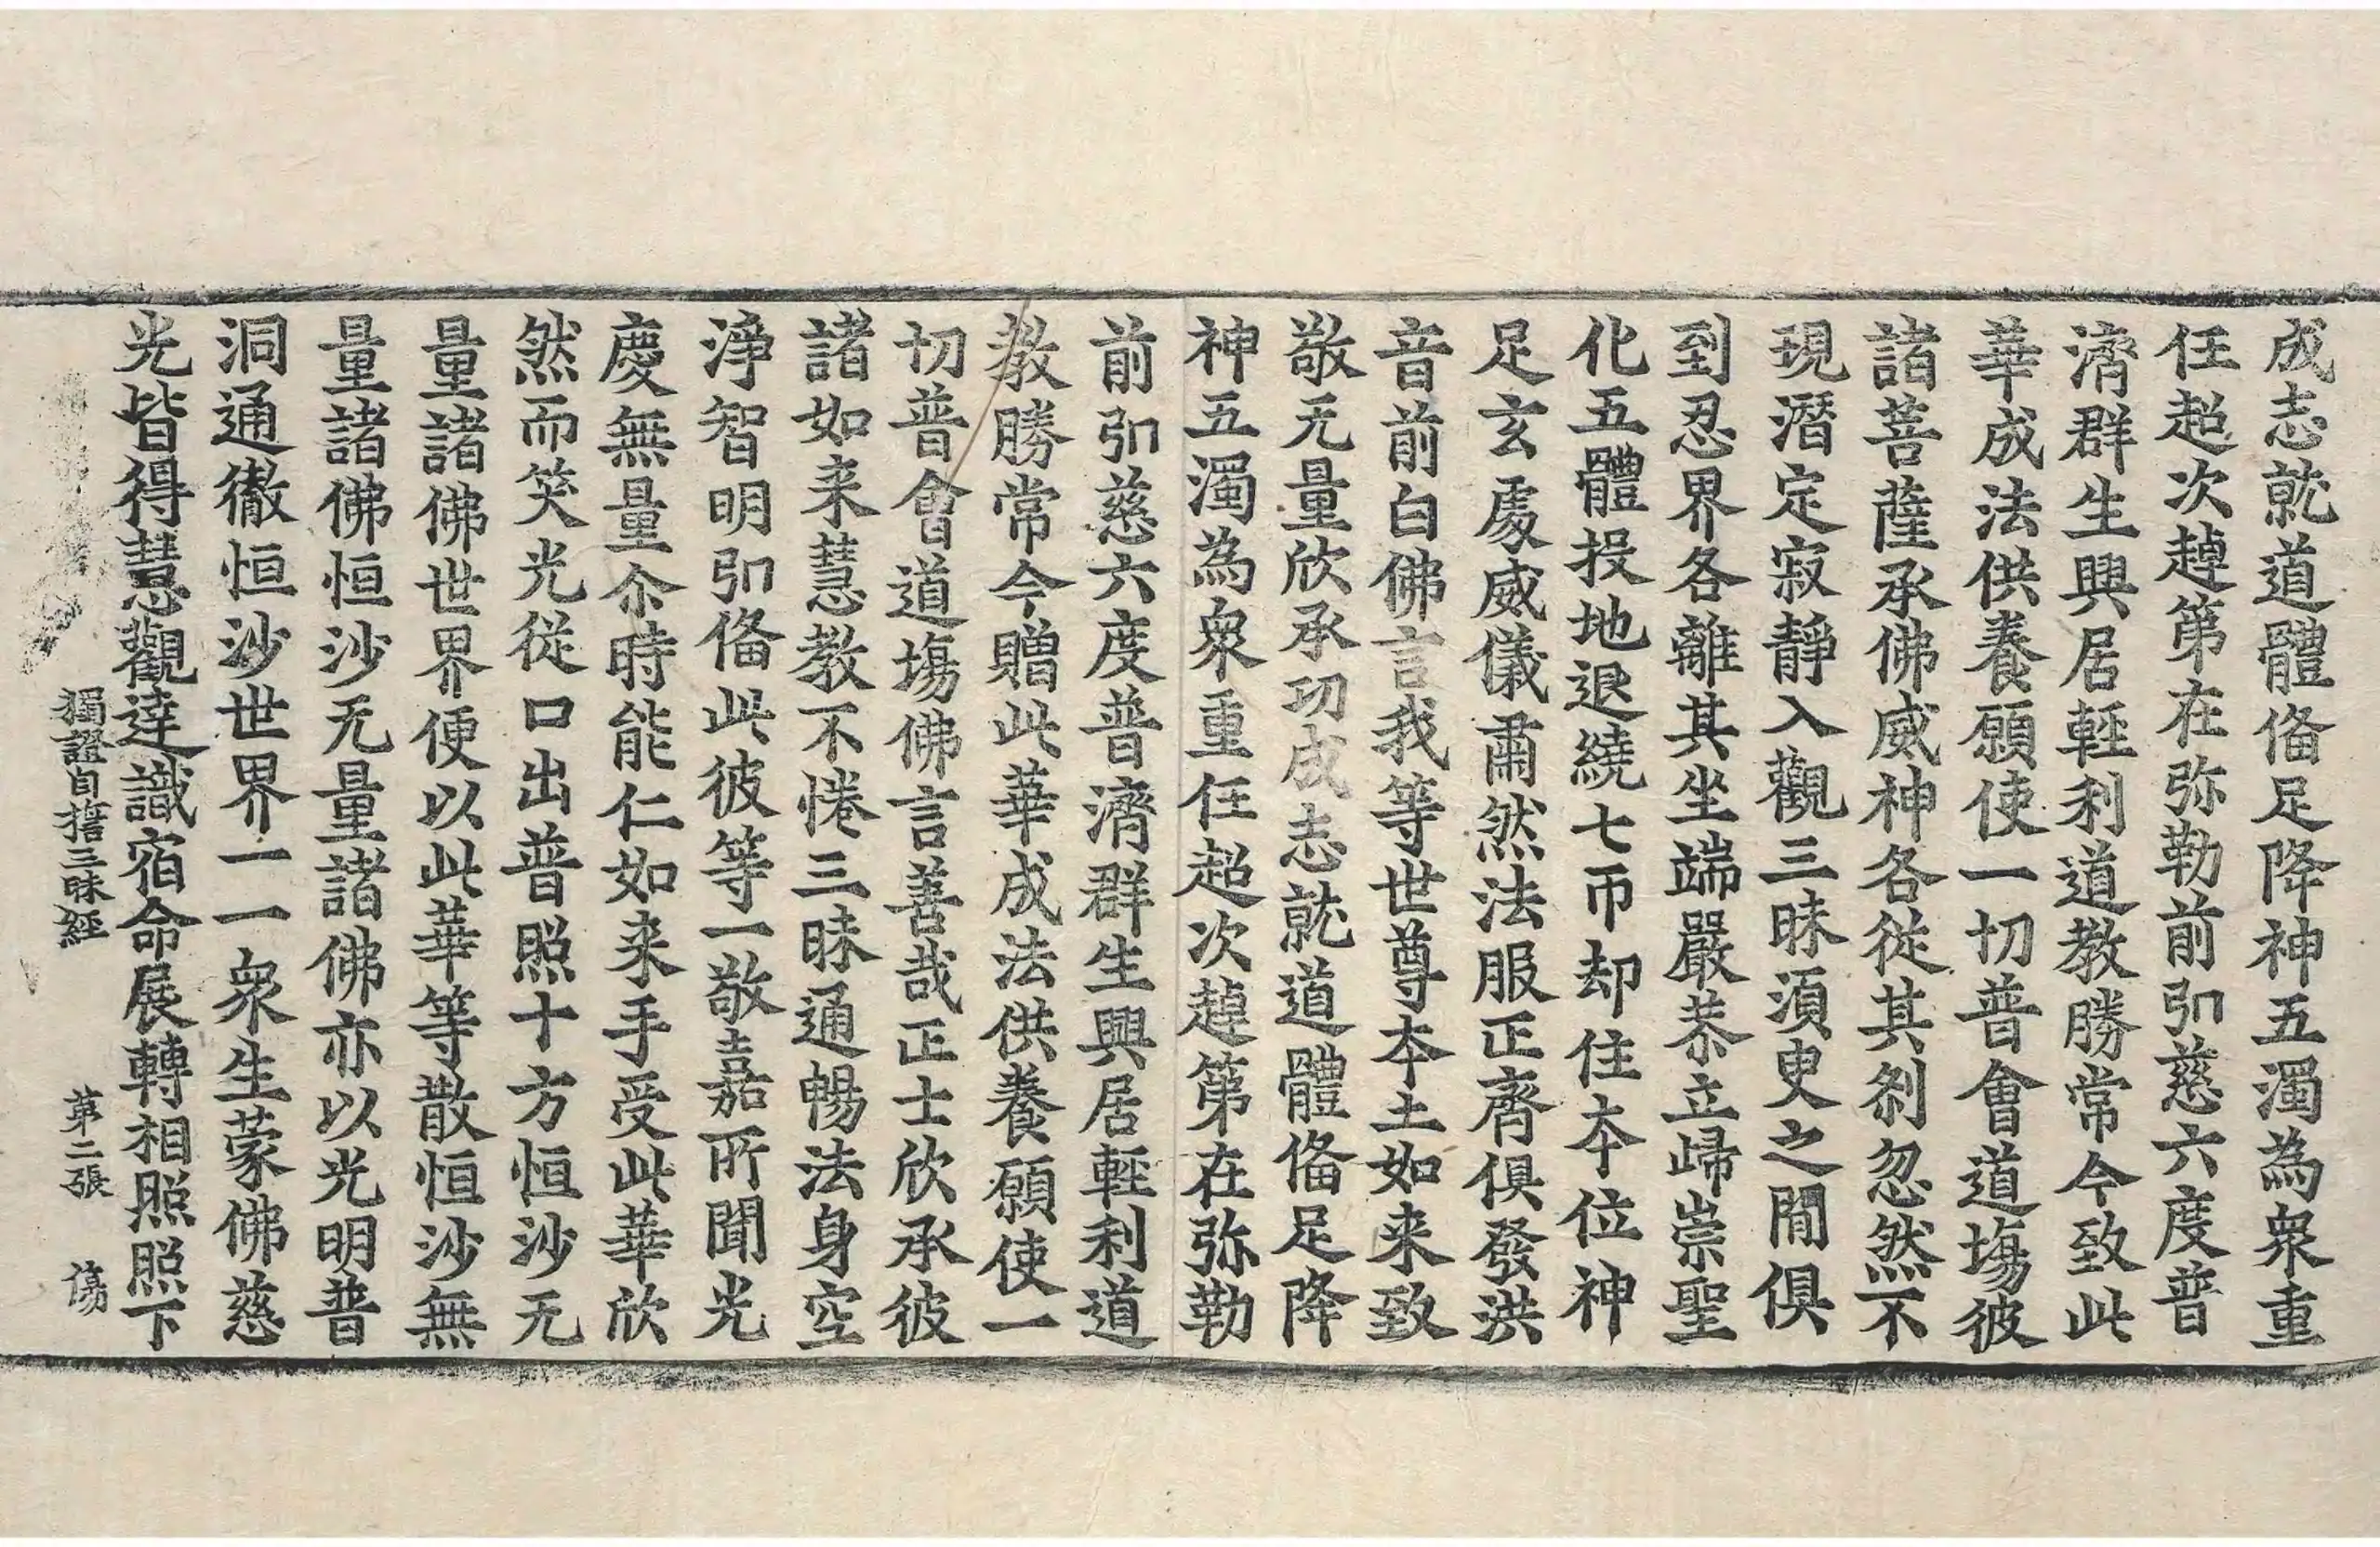 成志就道體俻足降神五濁為衆重
任超次趠第在弥勒前引慈六度普
濟群生興居輕利道教勝常今致此
華成法供養願使一切普會道塲彼
諸菩薩承佛威神各從其剎忽然不
現潛定寂靜入觀三昧湏臾之閒俱
到忍界各離其坐端嚴恭立歸崇聖
化五體投地退繞七帀却住本位神
足玄處威儀肅然法服正齊俱發洪
音前白佛言我等世尊本土如来致
敬无量欣承功成志就道體俻足降
神五濁為衆重任超次趠第在弥勒
前引慈六度普濟群生興居輕利道
教勝常今贈此華成法供養願使一
切普會道塲佛言善哉正士欣承彼
諸如来慧教不惓三昧通暢法身空
淨智明引俻此彼等一敬嘉所聞光
慶無量尒時能仁如来手受此華欣
然而笑光從口出普照十方恒沙无
量諸佛世界便以此華等散恒沙無
量諸佛恒沙无量諸佛亦以光明普
洞通徹恒沙世界一一衆生蒙佛慈
光皆得慧觀達識宿命展轉相照照下
獨證自誓三昧經 第二張 傷